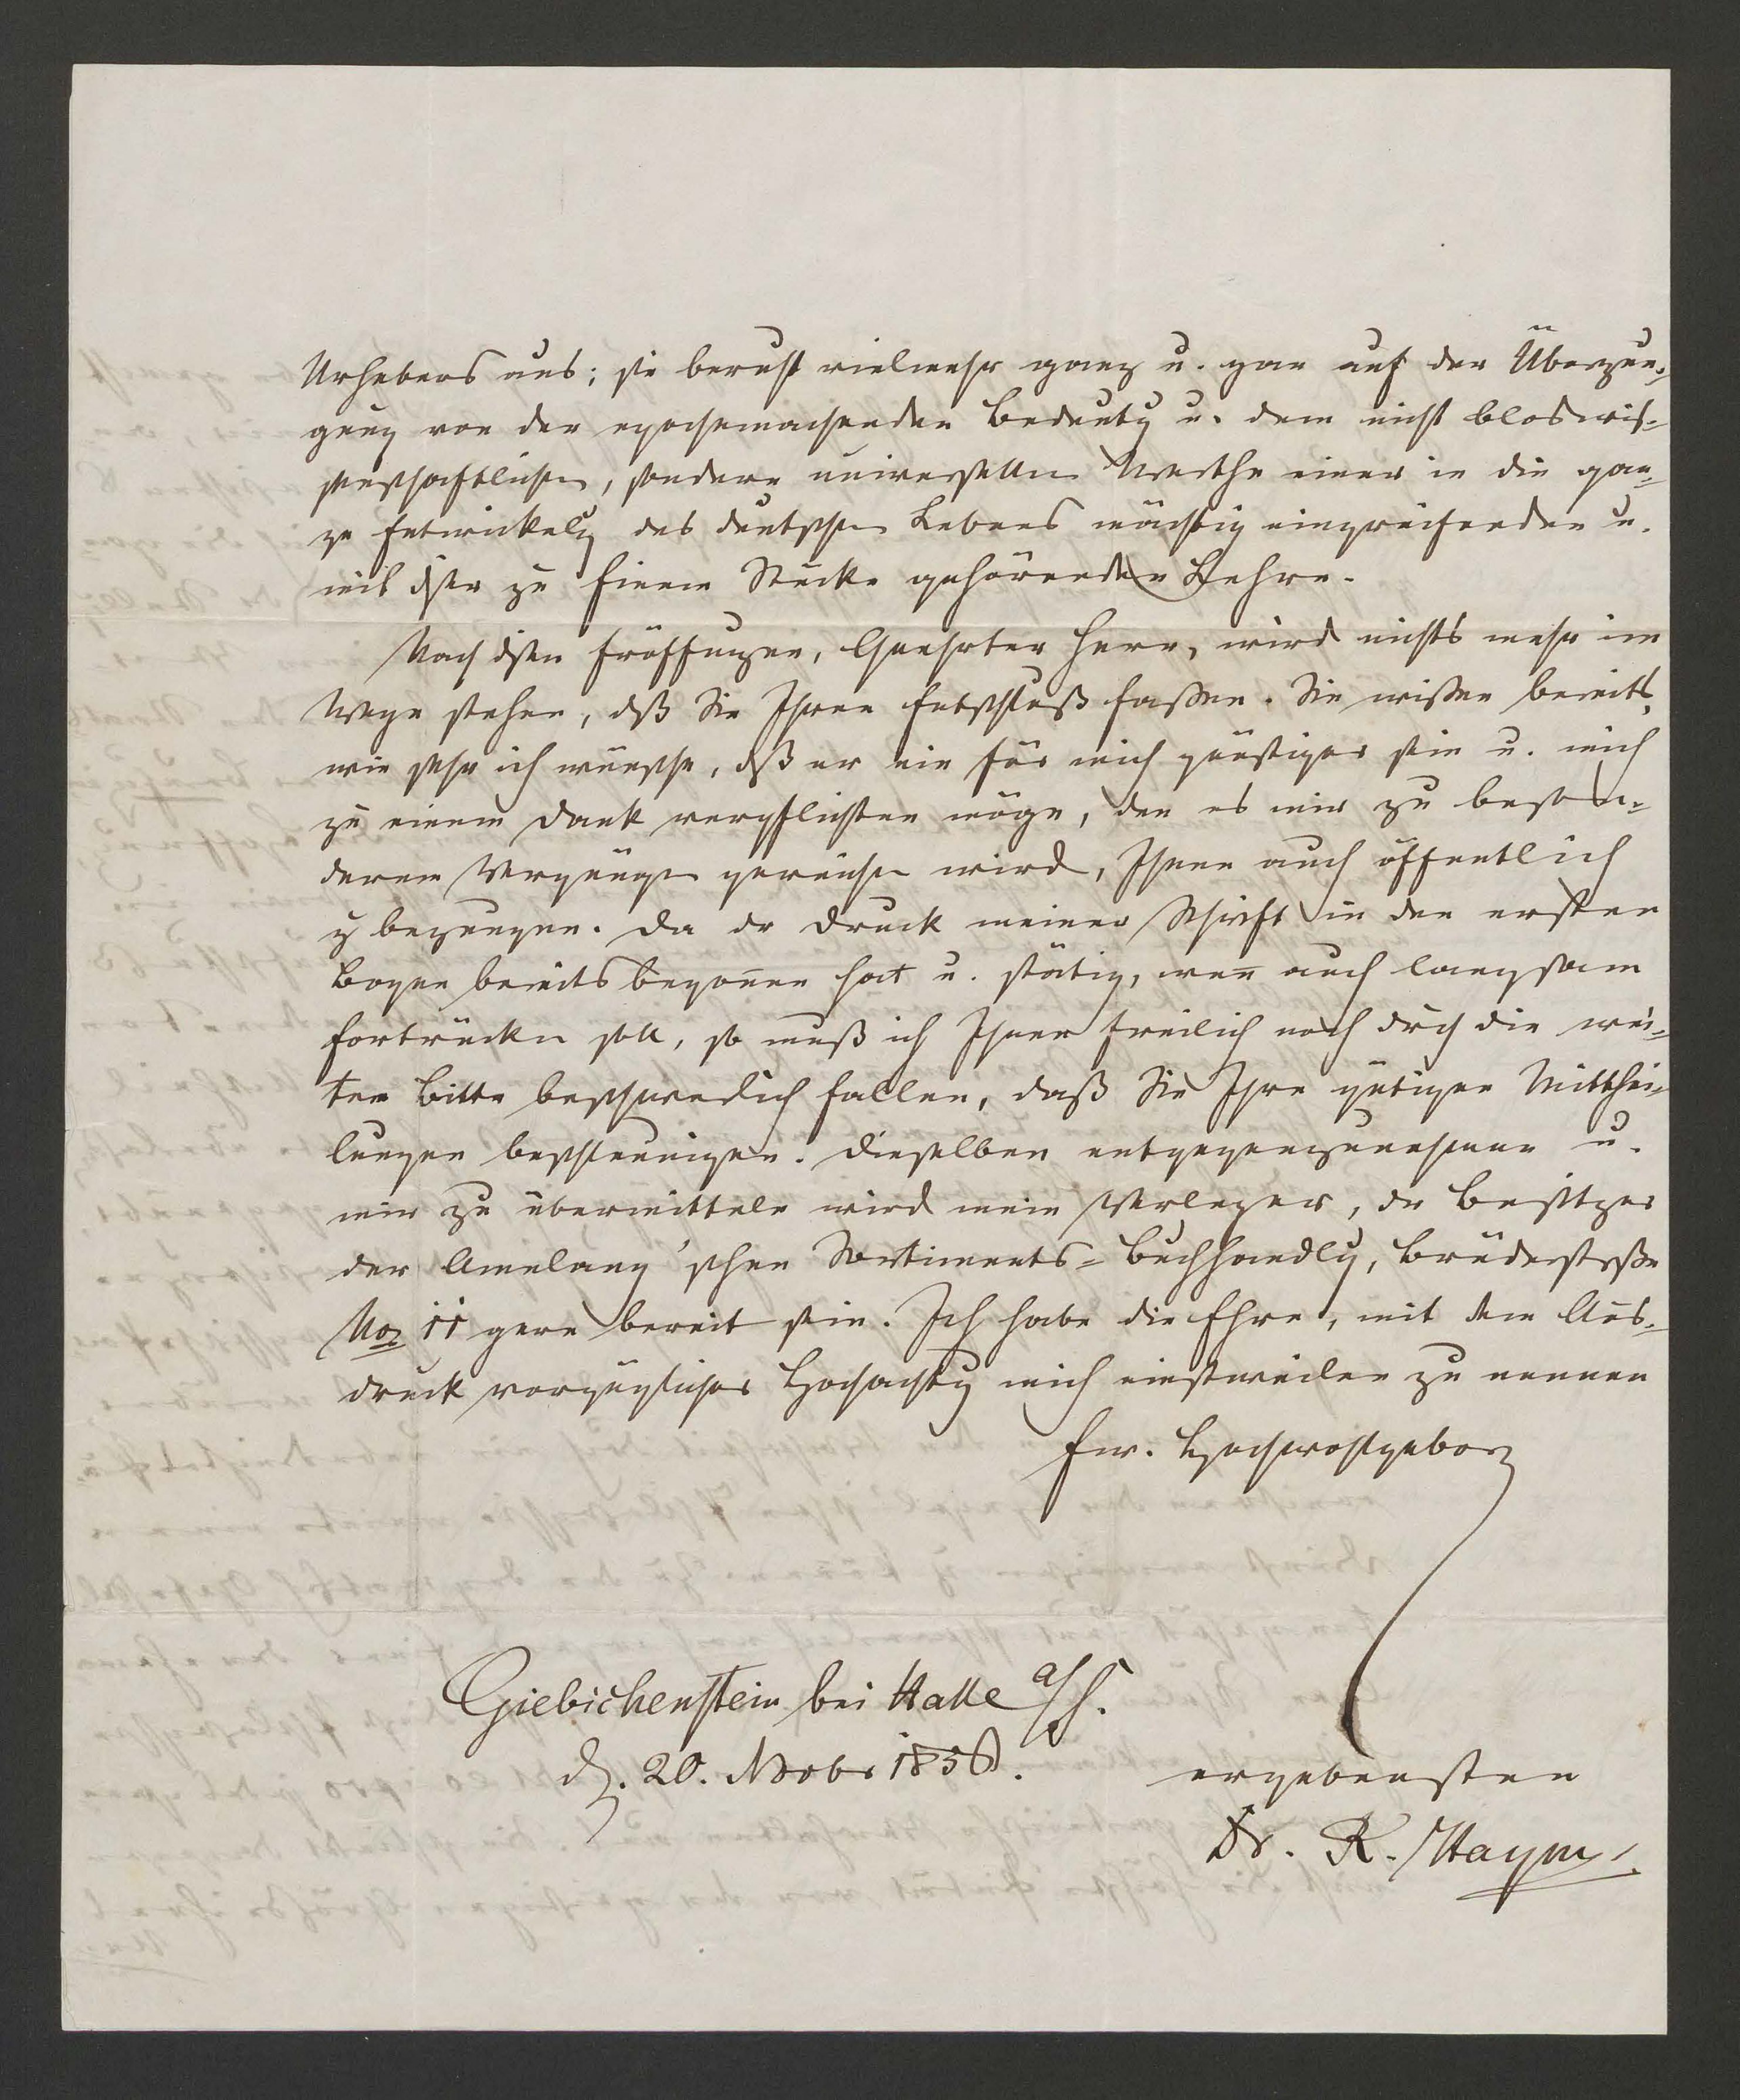 Urhebers aus; sie beruht vielmehr ganz u. gar auf der Überzeu-
gung von der epochemachenden Bedeutg u. dem nicht blos wis-
senschaftlichen, sondern universellen Werthe einer in die gan-
ze Entwickelg des deutschen Lebens mächtig eingreifenden u.
mit ihr zu Einem Stücke gehörenden Lehre.
Nach dsen Eröffnungen, Geehrter Herr, wird nichts mehr im
Wege stehen, dß Sie Ihren Entschluß fassen. Sie wissen bereits,
wie sehr ich wünsche, dß er ein für mich günstiger sein u. mich
zu einem Dank verpflichten möge, den es mir zu beson-
derem Vergnügen gereichen wird, Ihnen auch öffentlich
z bezeugen. Da dr Druck meiner Schrift in den ersten
Bogen bereits begonnen hat u. stätig, wenn auch langsam
fortrücken soll, so muß ich Ihnen freilich noch drch die wei-
tere Bitte beschwerlich fallen, daß Sie Ihre gütigen Mitthei-
lungen beschleunigen. Dieselben entgegenzunehmen u.
mir zu übermitteln wird mein Verleger, dr Besitzer
der Amelang'schen Sortiments-Buchhandlg, Brüderstrße
No 11 gern bereit sein. Ich habe die Ehre, mit dem Aus-
druck vorzüglicher Hochachtg mich einstweilen zu nennen
Ew. Hochwohlgeborn
Giebichenstein bei Halle a/S.
d. 20. Novbr 1856.
ergebensten
Dr. R. Haym.